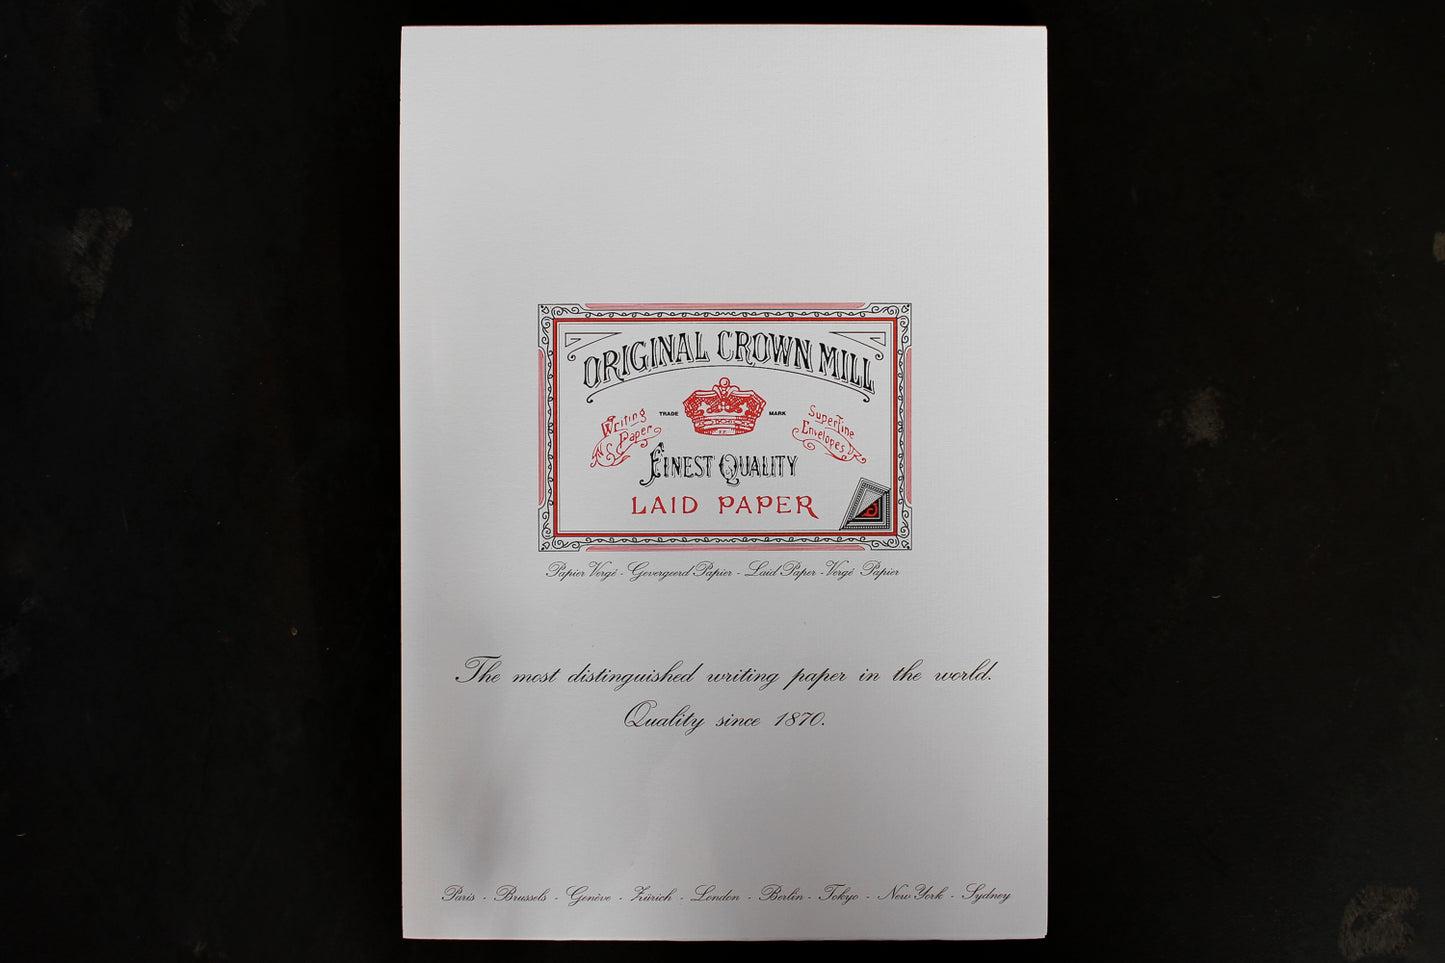 ORIGINAL CROWN MILL
TRADE MARK
Writing Paper
Superfine Envelopes
FINEST QUALITY
LAID PAPER
Papier Vergé - Gevergeerd Papier - Laid Paper - Vergé Papier
The most distinguished writing paper in the world.
Quality since 1870.
Paris - Brussels - Genève - Zürich - London - Berlin - Tokyo - New York - Sydney